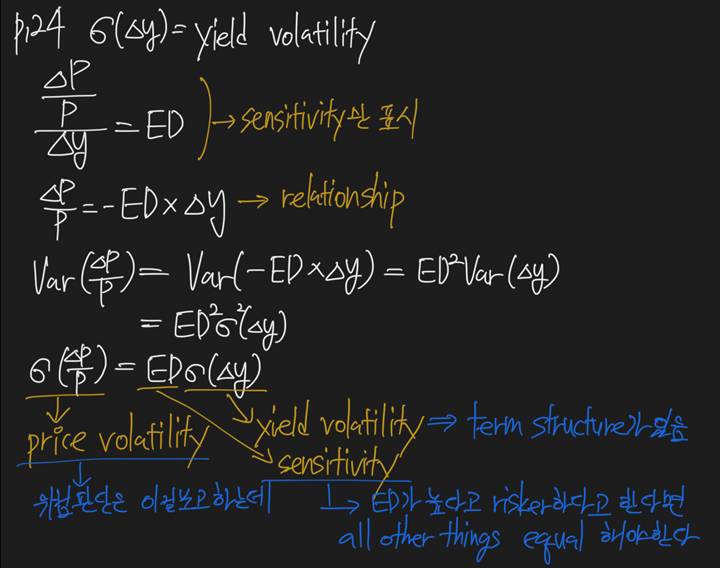 p.24 σ(Δy) = yield volatility
(ΔP/P)/Δy = ED → sensitivity만 표시
ΔP/P = -ED × Δy → relationship
Var(ΔP/P) = Var(-ED × Δy) = ED² Var(Δy)
= ED² σ²(Δy)
σ(ΔP/P) = ED σ(Δy)
price volatility
yield volatility ⇒ term structure가 있음
sensitivity
위험판단은 이걸보고하는데
→ ED가 높다고 risker하다고 한다면
all other things equal 해야한다